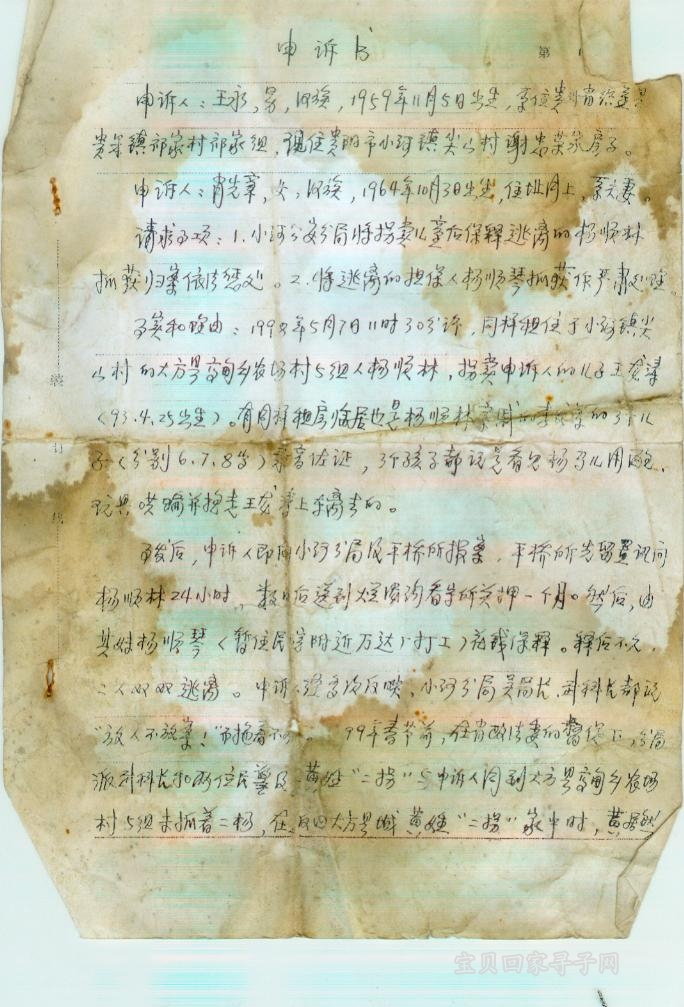 申诉书
第 1
申诉人：王永，男，汉族，1959年11月5日出生，家住贵州省
贵 镇邵家村邵家组，现住贵阳市小河镇尖山村谢忠荣家房子。
申诉人：肖先 ，女，汉族，1964年10月3日出生，住址同上，系夫妻。
请求事项：1.小河公安分局将拐卖儿童后保释逃离的杨顺林
抓获归案依法惩处。2.将逃离的担保人杨顺琴抓获作严肃处理。
事实和理由：199 年5月7日11时30分许，同样租住于小河镇尖
山村的大方县 乡农场村5组人杨顺林，拐卖申诉人的儿子王
（93.4.25出生）。有同样租房临居也是杨顺林 的 的3个儿
子（分别6.7.8岁） 佐证，3个孩子都说是看见杨 儿用
玩具哄 并抱走王 上车离去的。
事发后，申诉人即向小河分局及平桥所报案，平桥所先留置讯问
杨顺林24小时，数日后送到 看守所关押一个月。然后，由
其妹杨顺琴（暂住民 附近万达厂打工） 保释。释后不久，
二人双双逃离。申诉人 反映，小河分局吴局长、 科长都说
“放人不放案！”而拖着不 。99年春节前，在省政法委的督促下，分局
派 科长和两位民警及黄姓“二拐”与申诉人同到大方县 乡农场
村5组未抓着二杨，在返回大方县城黄姓“二拐”家中时，黄居然
装
订
线
宝贝回家寻子网